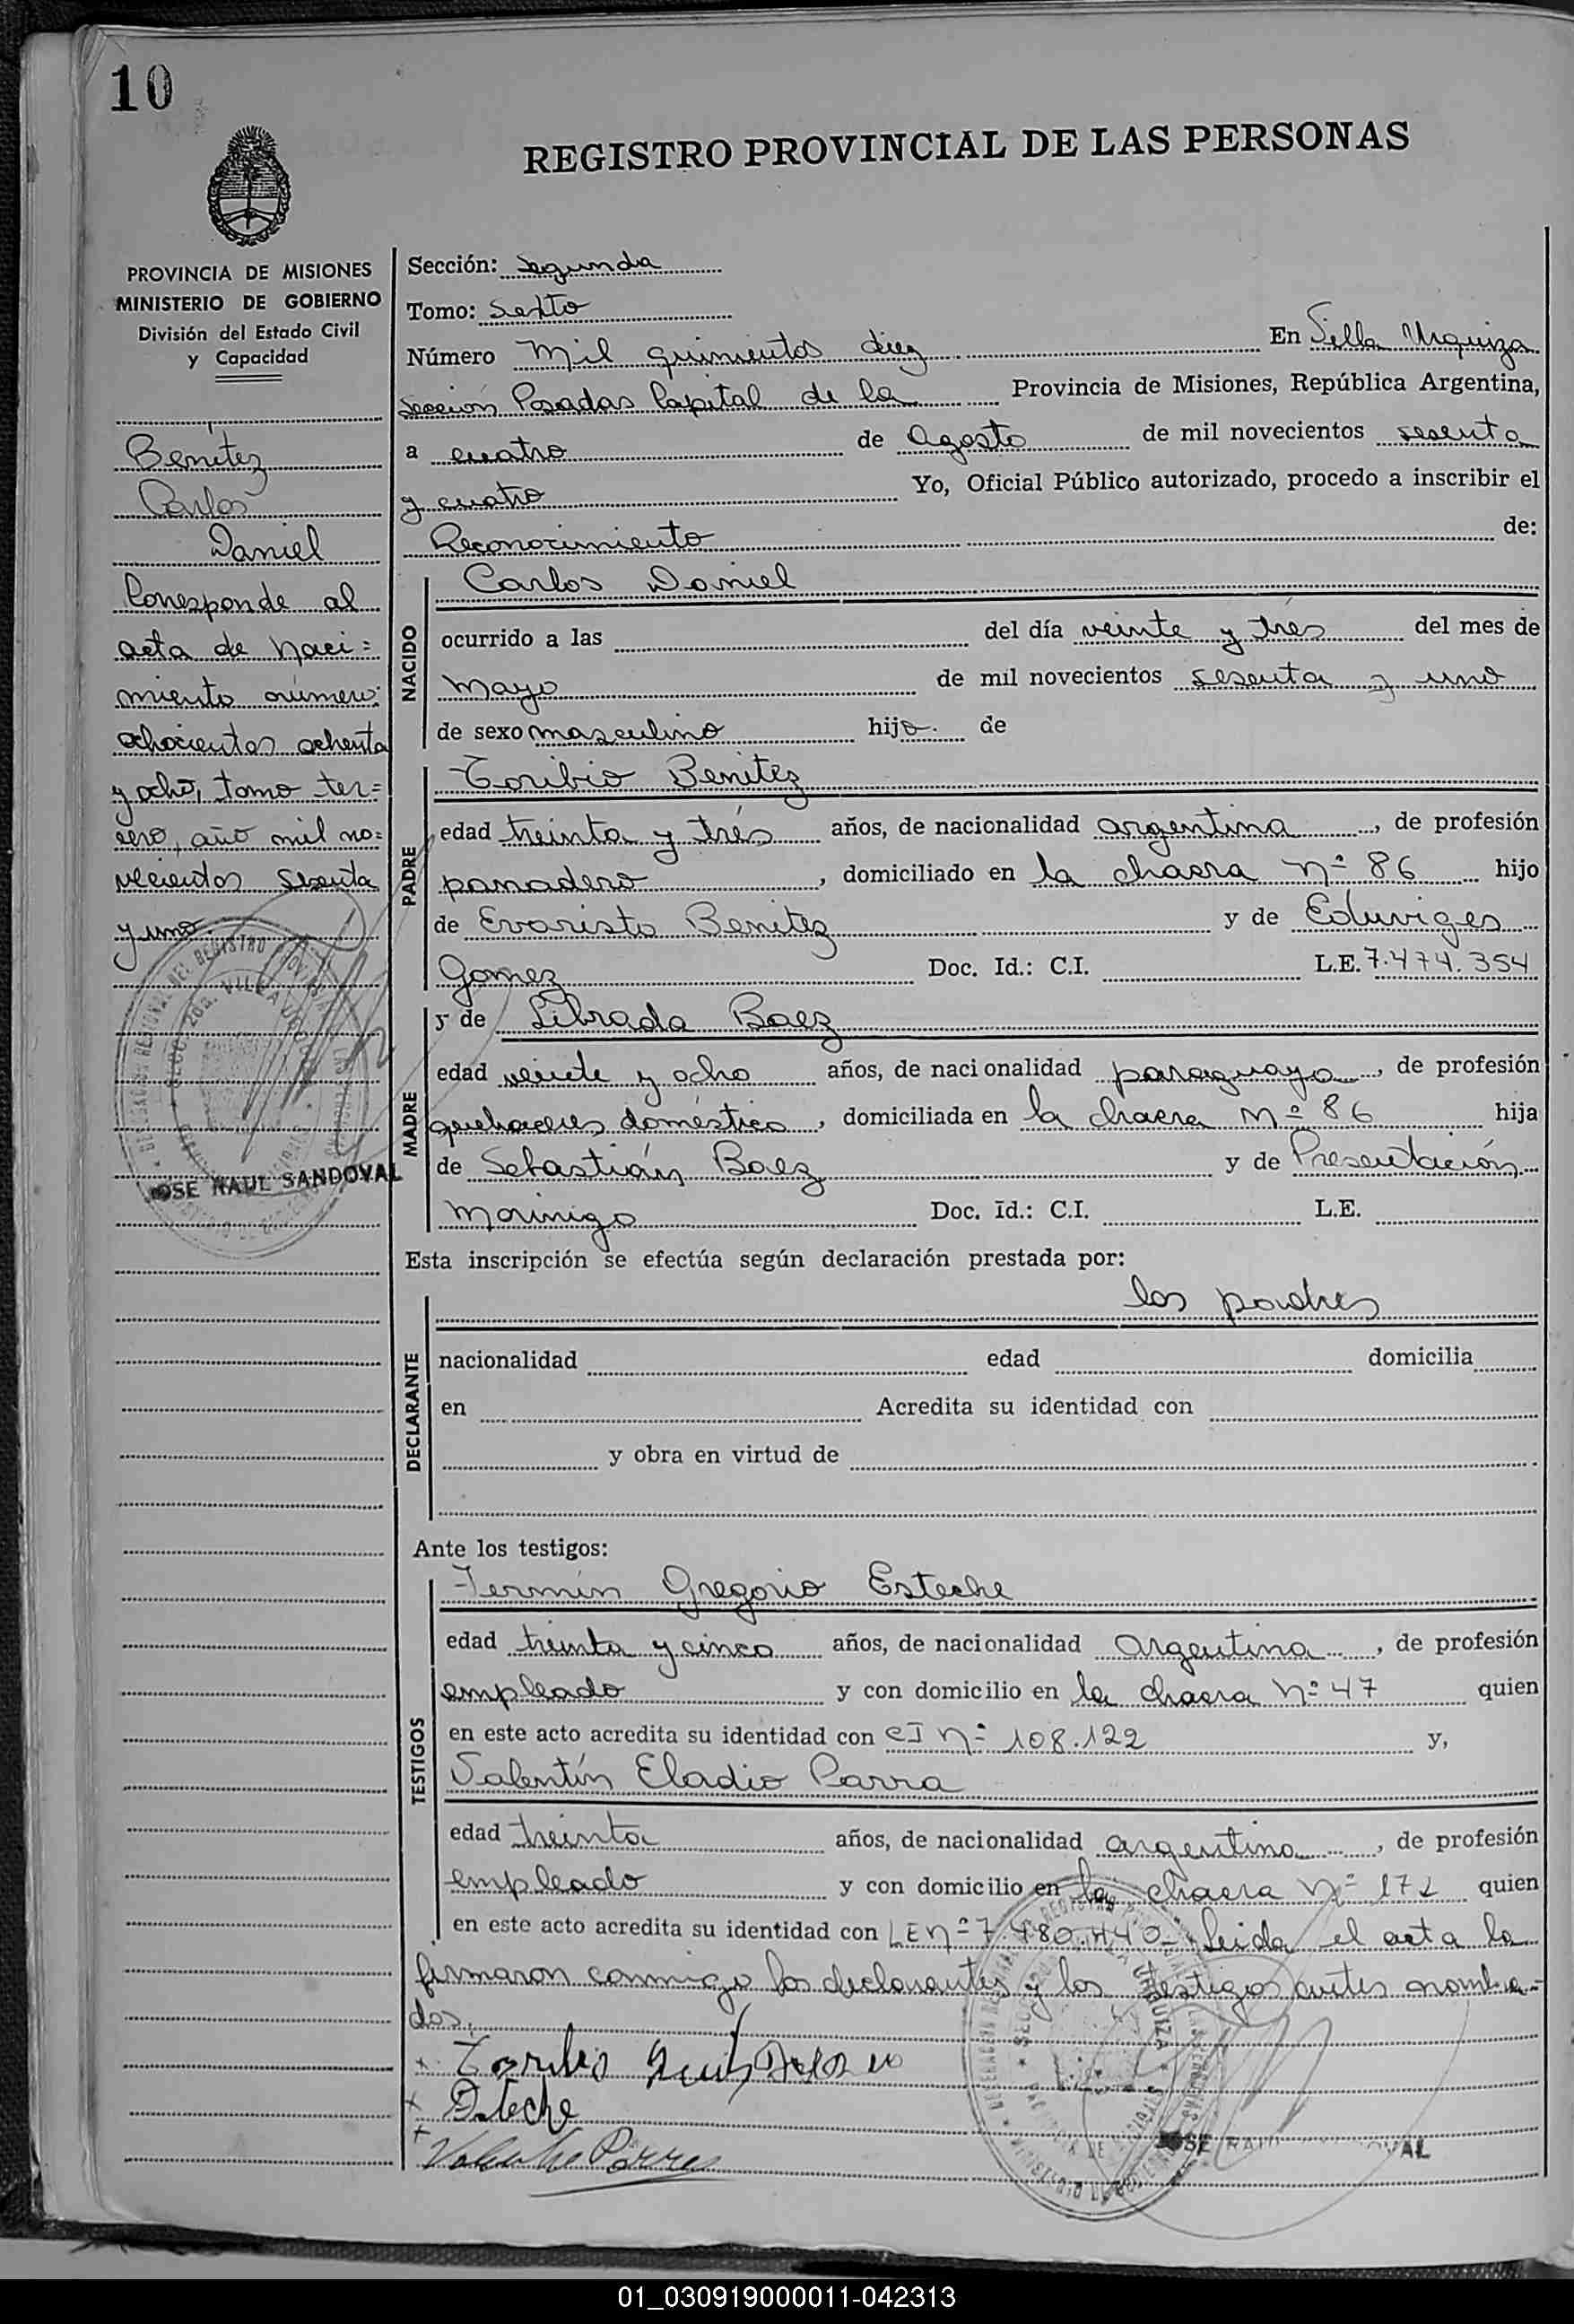 10
REGISTRO PROVINCIAL DE LAS PERSONAS
PROVINCIA DE MISIONES
MINISTERIO DE GOBIERNO
División del Estado Civil
y Capacidad
Benítez
Carlos
Daniel
Corresponde al
acta de naci=
miento número:
ochocientos ochenta
y ocho, tomo ter=
cero, año mil no=
vecientos sesenta
y uno.
JOSE RAUL SANDOVAL
Sección: Segunda
Tomo: Sexto
Número Mil quinientos diez En Villa Urquiza
Sección Posadas Capital de la Provincia de Misiones, República Argentina,
a cuatro de Agosto de mil novecientos sesenta
y cuatro Yo, Oficial Público autorizado, procedo a inscribir el
Reconocimiento de:
NACIDO
Carlos Daniel
ocurrido a las del día veinte y tres del mes de
mayo de mil novecientos sesenta y uno
de sexo masculino hijo. de
PADRE
Toribio Benitez
edad treinta y trés años, de nacionalidad argentina, de profesión
panadero, domiciliado en la chacra nº 86 hijo
de Evaristo Benitez y de Eduviges
Gomez Doc. Id.: C.I. L.E. 7.474.354
MADRE
y de Librada Baez
edad veinte y ocho años, de nacionalidad paraguaya, de profesión
quehaceres doméstico, domiciliada en la chacra nº 86 hija
de Sebastián Baez y de Presentación
Morinigo Doc. Id.: C.I. L.E.
Esta inscripción se efectúa según declaración prestada por:
DECLARANTE
los padres
nacionalidad edad domicilia
en Acredita su identidad con
y obra en virtud de
Ante los testigos:
TESTIGOS
Fermín Gregorio Esteche
edad treinta y cinco años, de nacionalidad argentina, de profesión
empleado y con domicilio en la chacra nº 47 quien
en este acto acredita su identidad con CI nº 108.122 y,
Valentín Eladio Parra
edad treinta años, de nacionalidad argentina, de profesión
empleado y con domicilio en la chacra nº 172 quien
en este acto acredita su identidad con LE nº 7.480.440_ Leida el acta la
firmaron conmigo los declarantes y los testigos antes nombra=
dos.
Toribio
Esteche
JOSE RAUL SANDOVAL
01_030919000011-042313